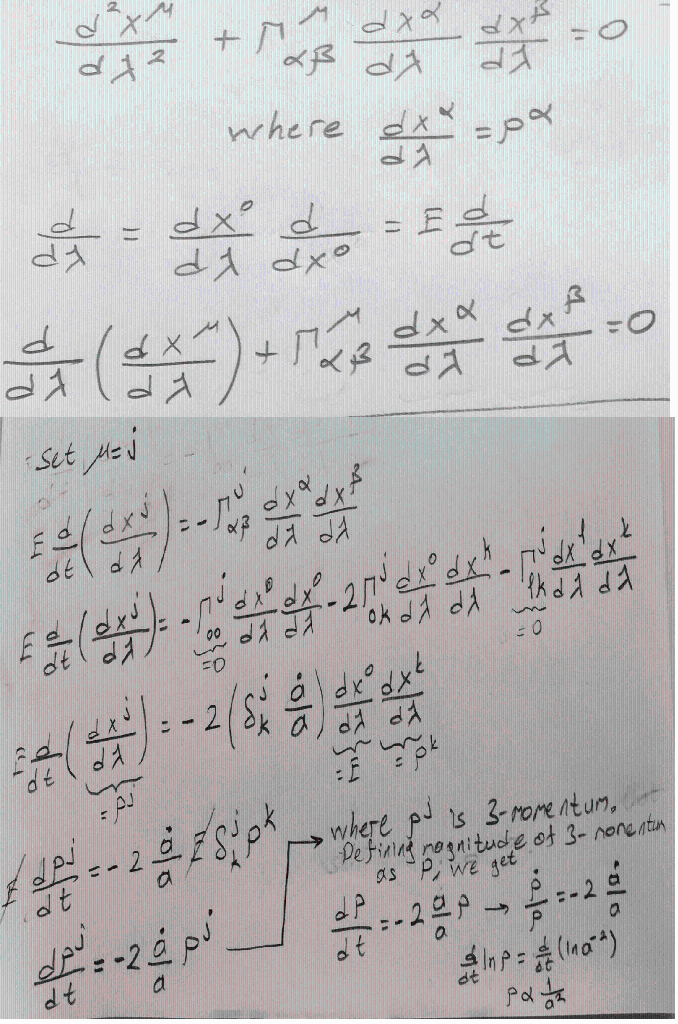 d²x^μ/dλ² + Γ^μ_αβ dx^α/dλ dx^β/dλ = 0
where dx^α/dλ = p^α
d/dλ = dx⁰/dλ d/dx⁰ = E d/dt
d/dλ (dx^μ/dλ) + Γ^μ_αβ dx^α/dλ dx^β/dλ = 0
set μ=j
E d/dt (dx^j/dλ) = - Γ^j_αβ dx^α/dλ dx^β/dλ
E d/dt (dx^j/dλ) = - Γ^j_00 dx⁰/dλ dx⁰/dλ - 2Γ^j_0k dx⁰/dλ dx^k/dλ - Γ^j_lk dx^l/dλ dx^k/dλ
=0 =0
E d/dt (dx^j/dλ) = - 2 (δ^j_k ȧ/a) dx⁰/dλ dx^k/dλ
= p^j =E = p^k
E dp^j/dt = - 2 ȧ/a E δ^j_k p^k
dp^j/dt = - 2 ȧ/a p^j
where p^j is 3-momentum.
Defining magnitude of 3-momentum
as P, we get
dp/dt = - 2 ȧ/a p → ṗ/p = - 2 ȧ/a
d/dt ln p = d/dt (ln a⁻²)
p ∝ 1/a²